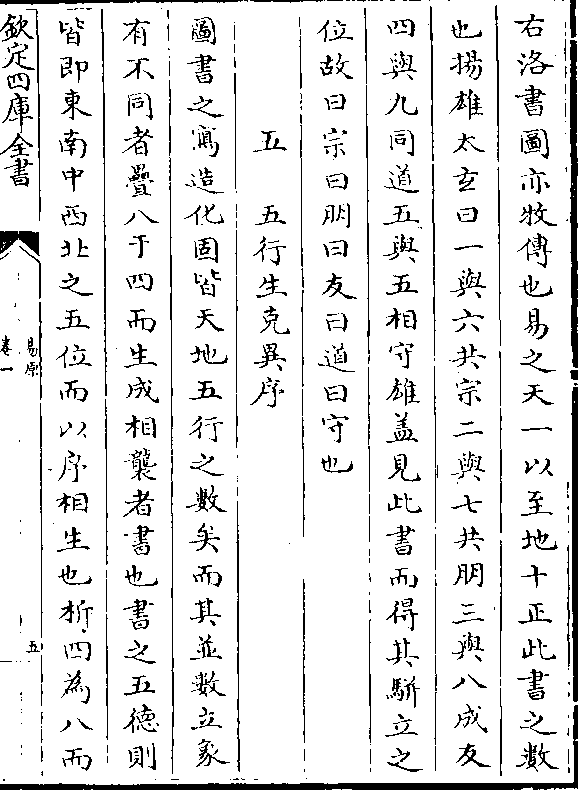 右洛書圖亦牧傳也易之天一以至地十正此書之數
也揚雄太玄曰一與六共宗二與七共朋三與八成友
四與九同道五與五相守雄蓋見此書而得其駢立之
位故曰宗曰朋曰友曰道曰守也
五 五行生克異序
圖書之寫造化固皆天地五行之數矣而其並數立象
有不同者疊八于四而生成相襲者書也書之五德則
皆即東南中西北之五位而以序相生也析四為八而
欽定四庫全書
易原
卷一
五